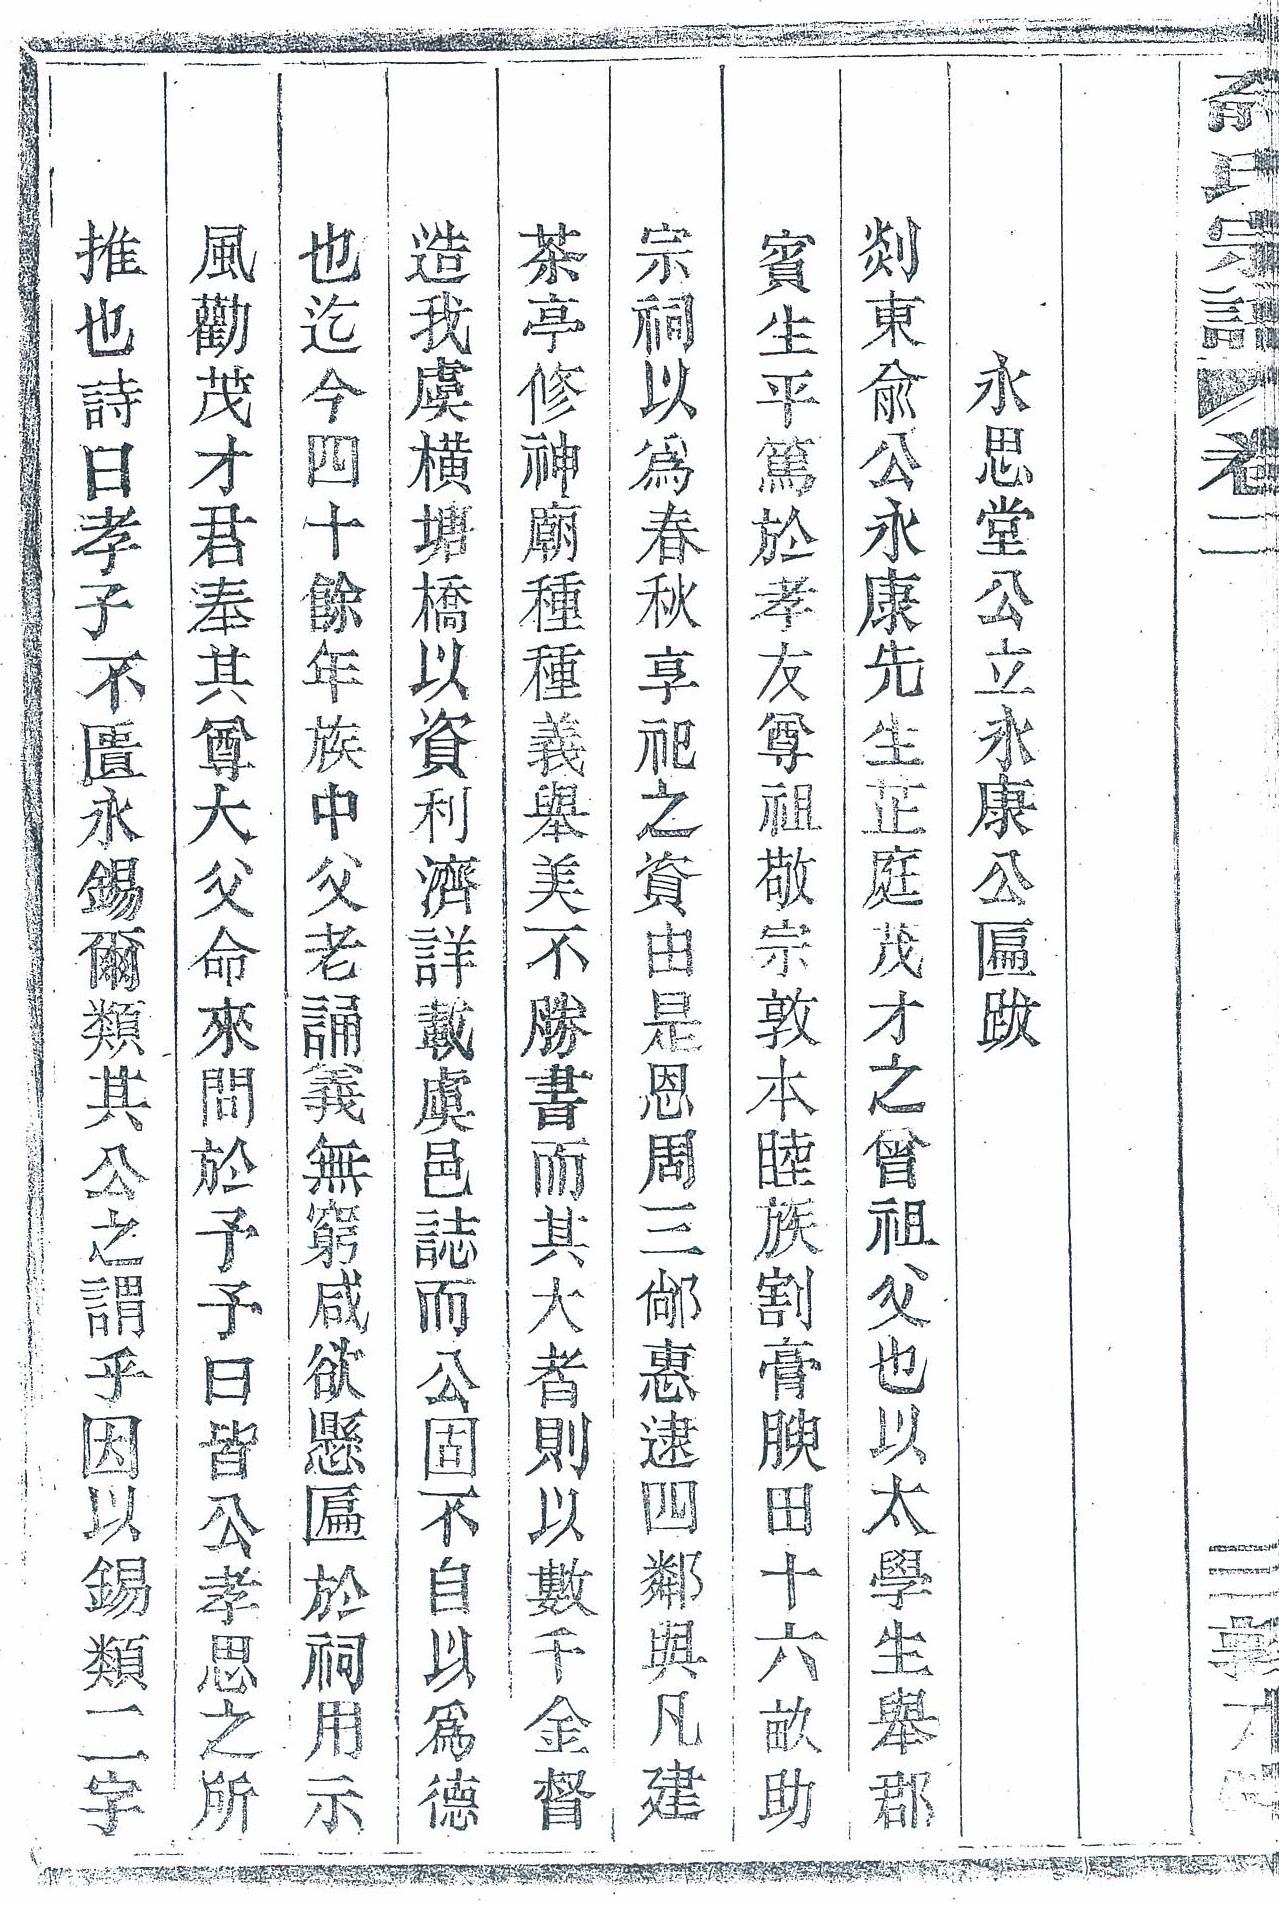 俞氏宗譜 卷二
永思堂公立永康公匾跋
剡東俞公永康先生芷庭茂才之曾祖父也以太學生舉郡
賓生平篤於孝友尊祖敬宗敦本睦族割膏腴田十六畝助
宗祠以為春秋享祀之資由是恩周三鄉惠逮四鄰與凡建
茶亭修神廟種種義舉美不勝書而其大者則以數千金督
造我虞橫塘橋以資利濟詳載虞邑誌而公固不自以為德
也迄今四十餘年族中父老誦義無窮咸欲懸匾於祠用示
風勸茂才君奉其尊大父命來問於予予曰皆公孝思之所
推也詩曰孝子不匱永錫爾類其公之謂乎因以錫類二字